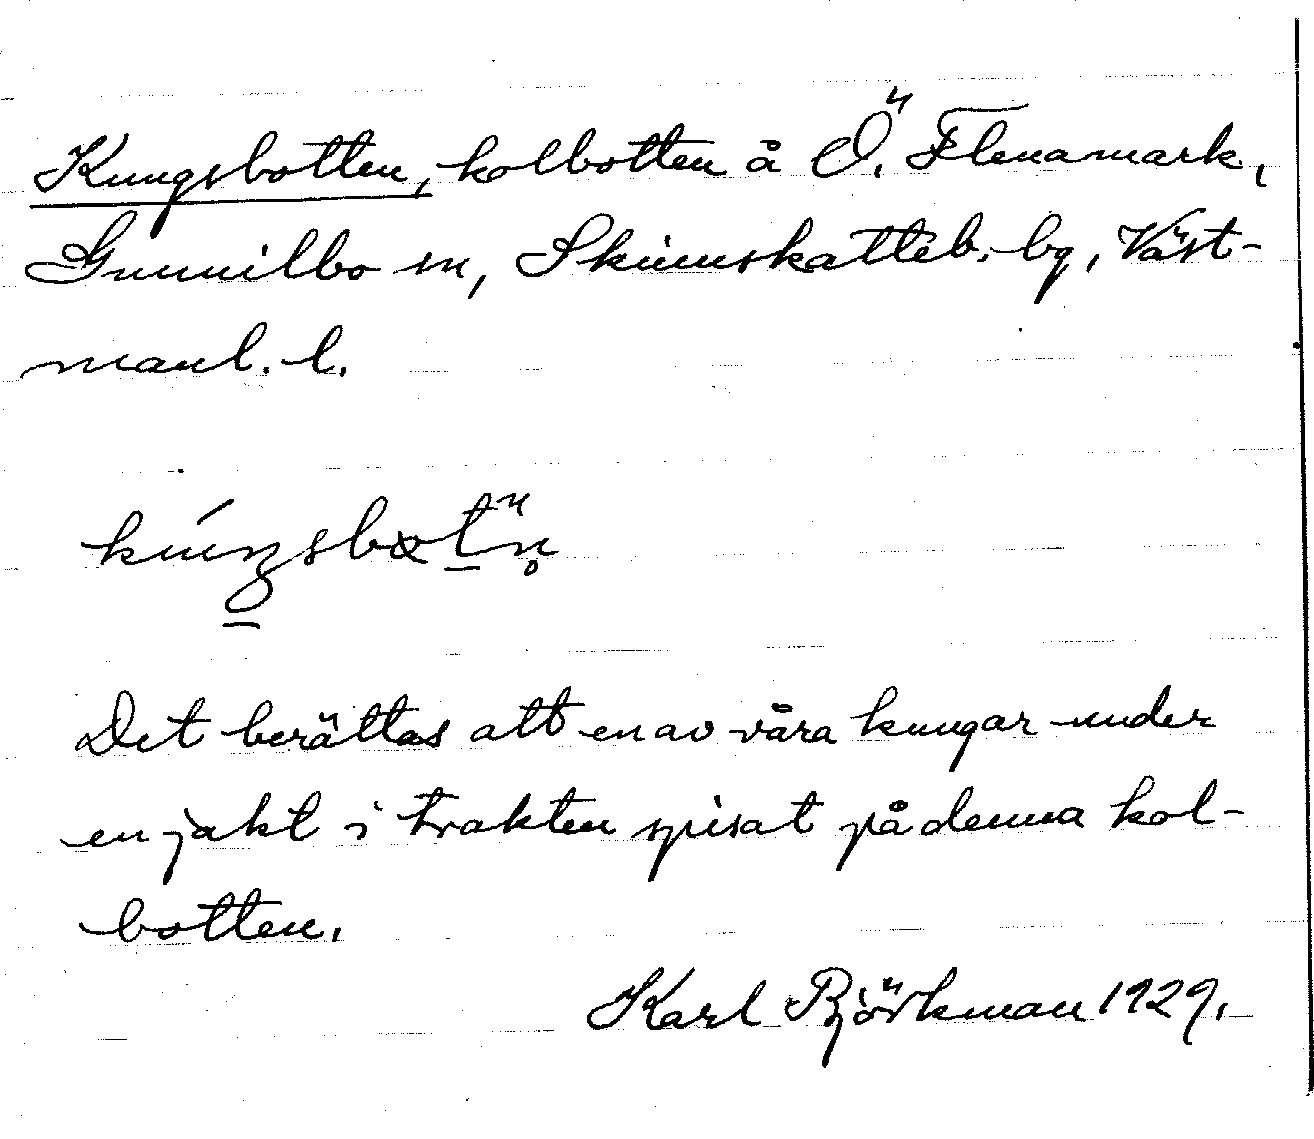 Kungsbotten, kolbotten å Ö. Flenamark,
Gunnilbo sn, Skinnskatteb. bg, Väst-
manl. l.
Det berättas att en av våra kungar under
en jakt i trakten spisat på denna kol-
botten.
Karl Björkman 1929.